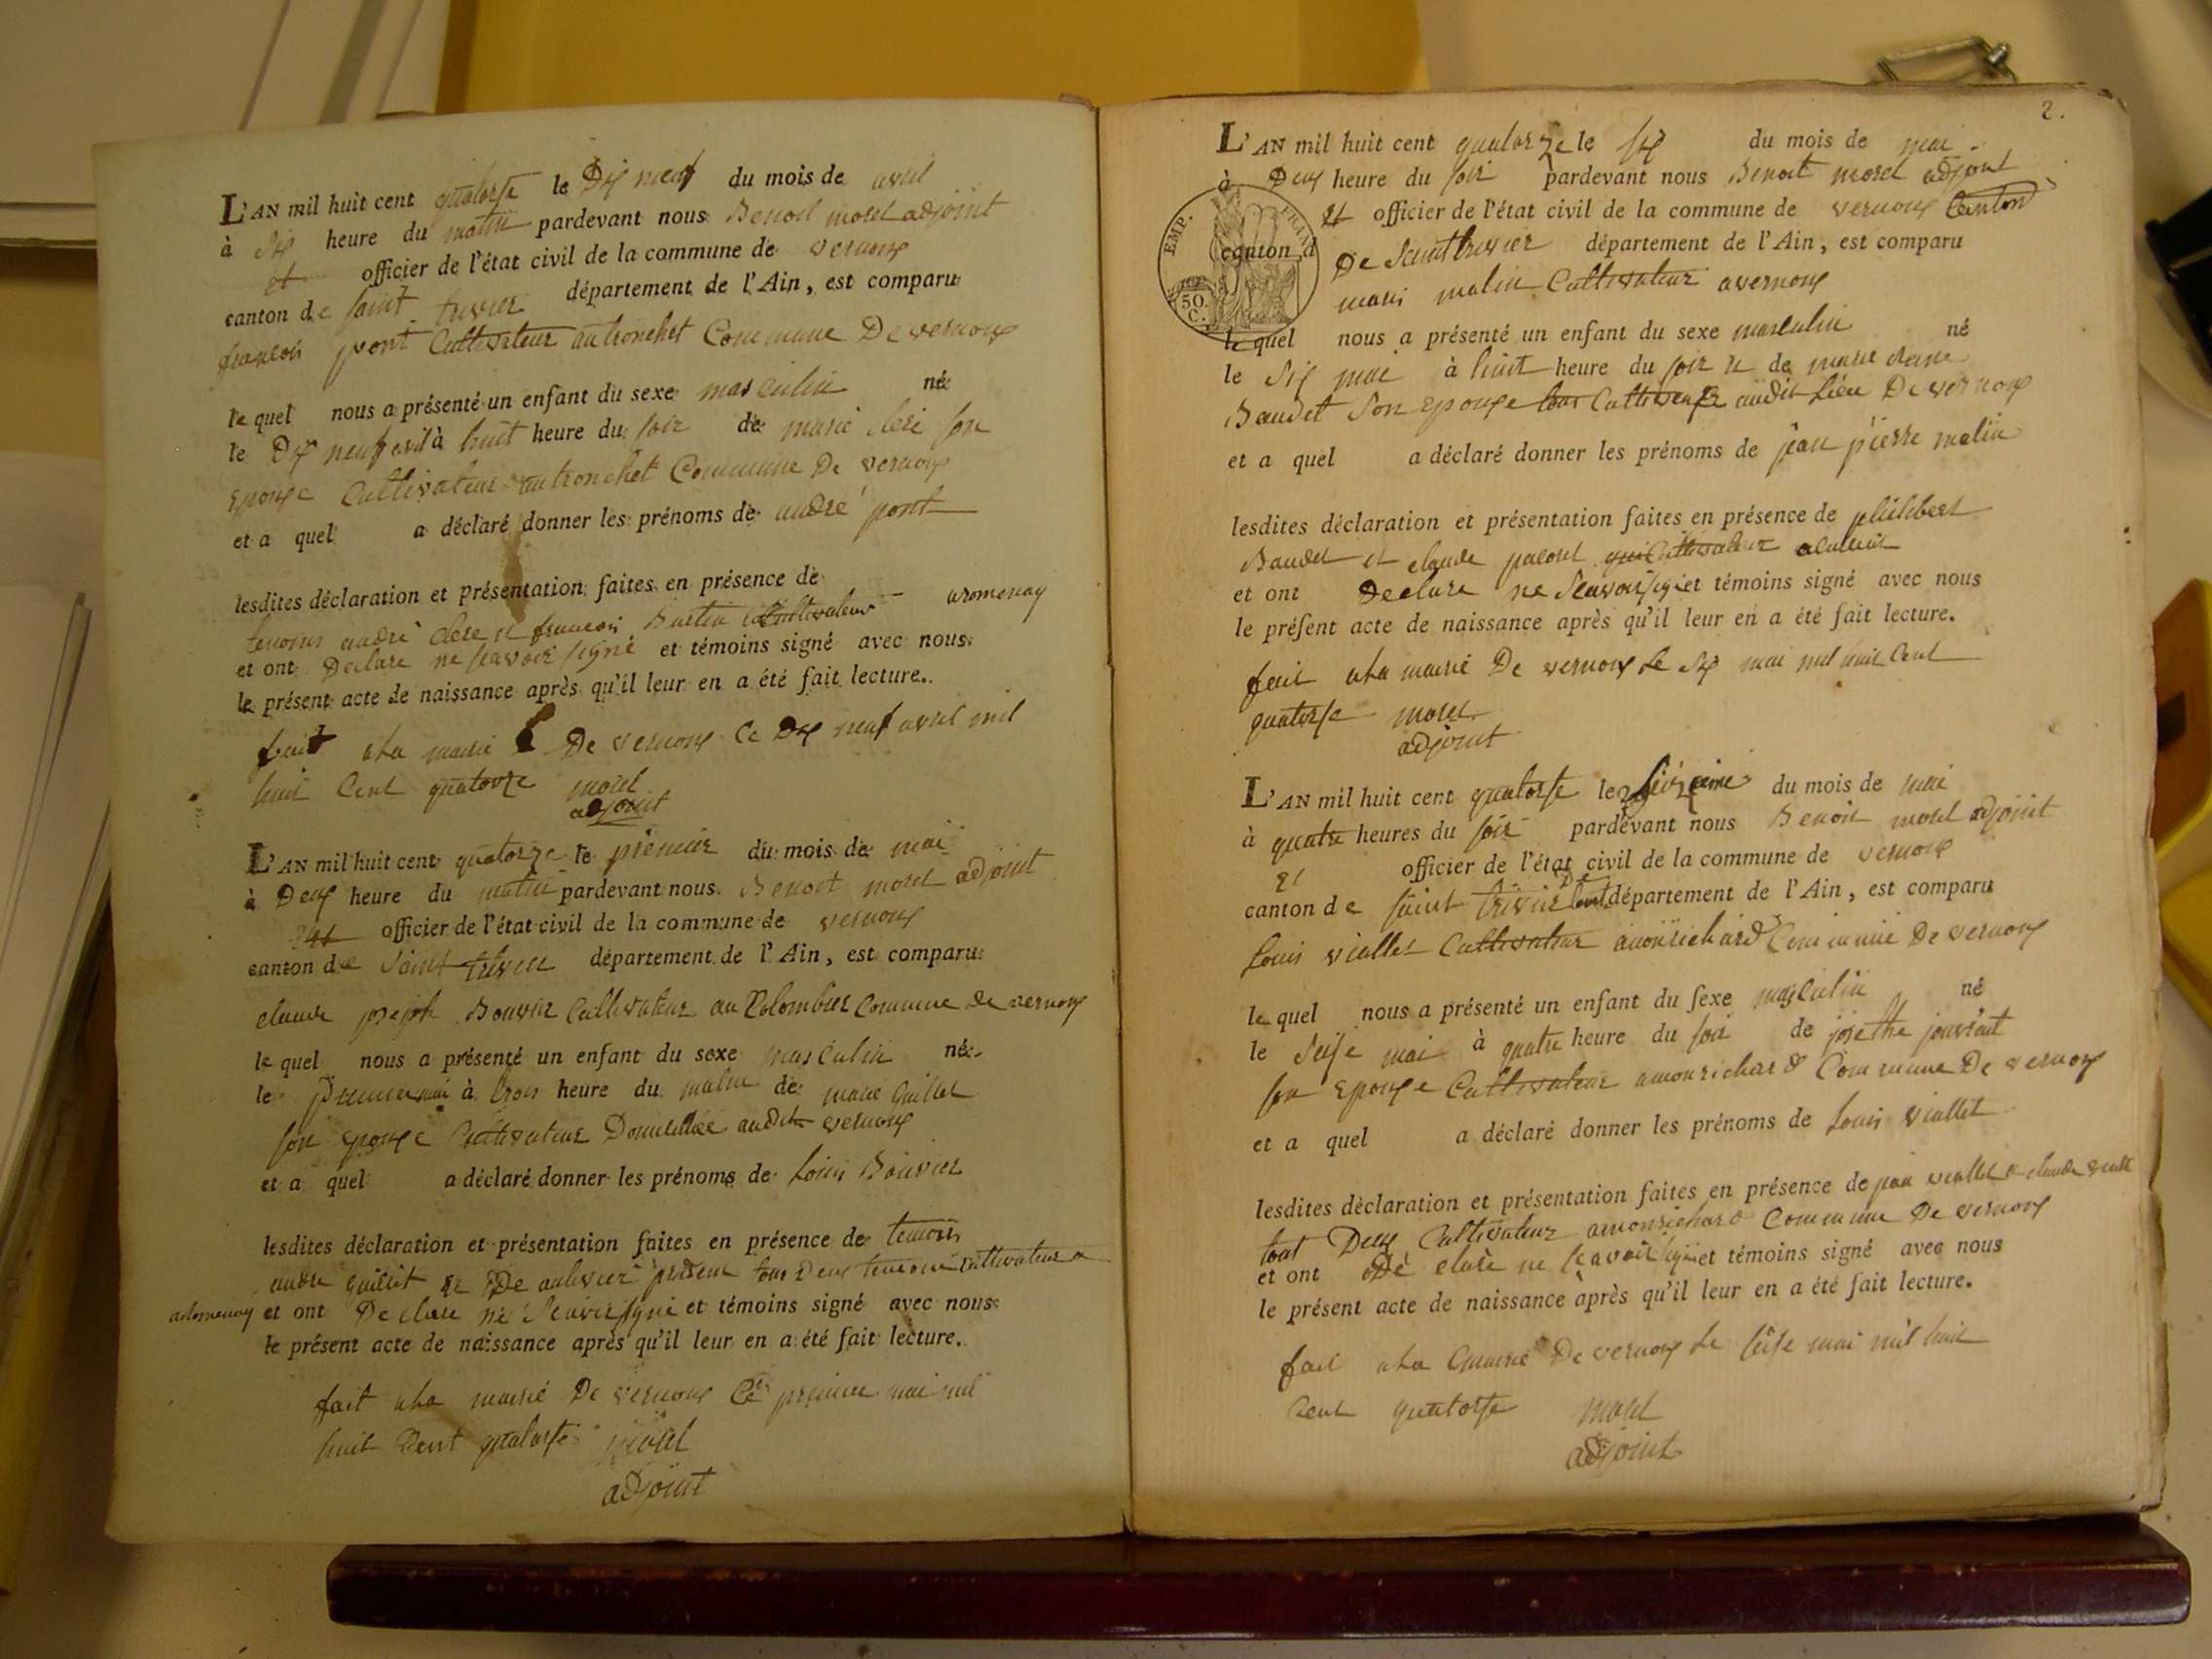 L'AN mil huit cent quatorse le Dix neuf du mois de avril
à Six heure du matin pardevant nous Benoit morel adjoint
et officier de l'état civil de la commune de vernoux
canton de saint trivier département de l'Ain, est comparu
françois pont Cultivateur au tronchet Commune De vernoux
le quel nous a présenté un enfant du sexe masculin né
le Dix neuf avril à huit heure du soir de marie clere son
Epouse Cultivateur au tronchet Commune De vernoux
et a quel a déclaré donner les prénoms de andré pont
lesdites déclaration et présentation faites en présence de
temoins andré clere et françois Cultivateur aromenay
et ont Declare ne scavoir signé et témoins signé avec nous
le présent acte de naissance après qu'il leur en a été fait lecture.
fait a la mairie De vernoux le Dix neuf avril mil
huit Cent quatorze morel
adjoint
L'AN mil huit cent quatorze le premier du mois de mai
à Deux heure du matin pardevant nous Benoit morel adjoint
et officier de l'état civil de la commune de vernoux
canton de saint trivier département de l'Ain, est comparu
claude joseph Bouvier Cultivateur au Colombier Commune de vernoux
le quel nous a présenté un enfant du sexe masculin né
le premier mai à trois heure du matin de marie Guillet
son epouse Cultivateur Domicillée audit vernoux
et a quel a déclaré donner les prénoms de Louis Bouvier
lesdites déclaration et présentation faites en présence de temoins
andre guillet et De tous Deux Cultivateur a
aromenay et ont De clare ne Scavoir signé et témoins signé avec nous
le présent acte de naissance après qu'il leur en a été fait lecture.
fait a la mairie De vernoux Ce premier mai mil
huit Cent quatorse morel
adjoint
2.
L'AN mil huit cent quatorze le six du mois de mai
à Deux heure du soir pardevant nous Benoit morel adjoint
et officier de l'état civil de la commune de vernoux Canton
EMP. FRAN
canton d De Saint trivier département de l'Ain, est comparu
50. C.
malin Cultivateur a vernoux
le quel nous a présenté un enfant du sexe masculin né
le Six mai à huit heure du soir de marie
Baudet Son Epouse Cultivateur audit Lieu De vernoux
et a quel a déclaré donner les prénoms de jean pierre malin
lesdites déclaration et présentation faites en présence de philibert
Baudet et claude Cultivateur
et ont Declare ne Scavoir signé et témoins signé avec nous
le présent acte de naissance après qu'il leur en a été fait lecture.
fait a la mairie De vernoux Le Six mai mil huit Cent
quatorse morel
adjoint
L'AN mil huit cent quatorse le du mois de mai
à quatre heures du soir pardevant nous Benoit morel adjoint
et officier de l'état civil de la commune de vernoux
canton de saint trivier département de l'Ain, est comparu
Louis viallet Cultivateur amonrichard Commune De vernoux
le quel nous a présenté un enfant du sexe masculin né
le Seise mai à quatre heure du soir de josethe
son Epouse Cultivateur amonrichard Commune De vernoux
et a quel a déclaré donner les prénoms de Louis viallet
lesdites dèclaration et présentation faites en présence de jean viallet et claude
tout Deux Cultivateur amonrichard Commune De vernoux
et ont Dé claré ne scavoir signé et témoins signé avec nous
le présent acte de naissance après qu'il leur en a été fait lecture.
fait a la mairie De vernoux Le seise mai mil huit
Cent quatorse morel
adjoint